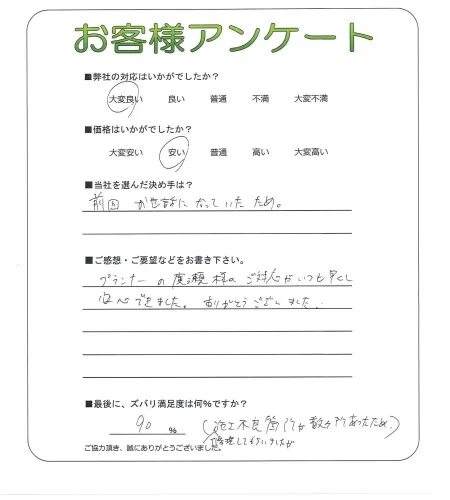 お客様アンケート
■弊社の対応はいかがでしたか？
大変良い 良い 普通 不満 大変不満
■価格はいかがでしたか？
大変安い 安い 普通 高い 大変高い
■当社を選んだ決め手は？
前回 お世話になっていた ため。
■ご感想・ご要望などをお書き下さい。
プランナーの廣瀬様の ご対応がいつも早くし
安心できました。ありがとうございました。
■最後に、ズバリ満足度は何％ですか？
90 ％ (施工不良箇所が数ヶ所あったため。)
修理してもらいましたが
ご協力頂き、誠にありがとうございました。